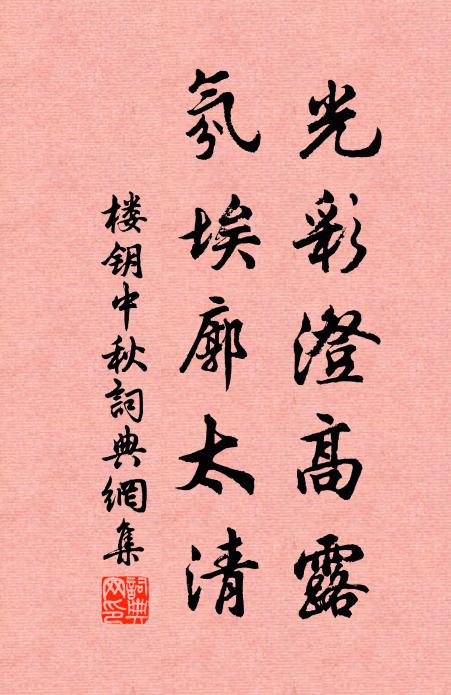 光彩澄高露
氛埃廓太清
楼钥中秋詞典網集
詞典
网印